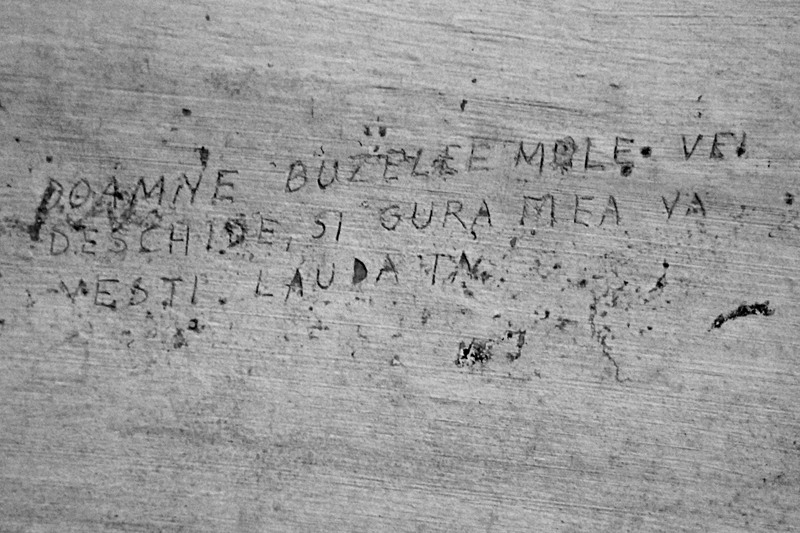 DOAMNE BUZELEE MELE VEI
DESCHIDE, SI GURA MEA VA
VESTI LAUDA TA.